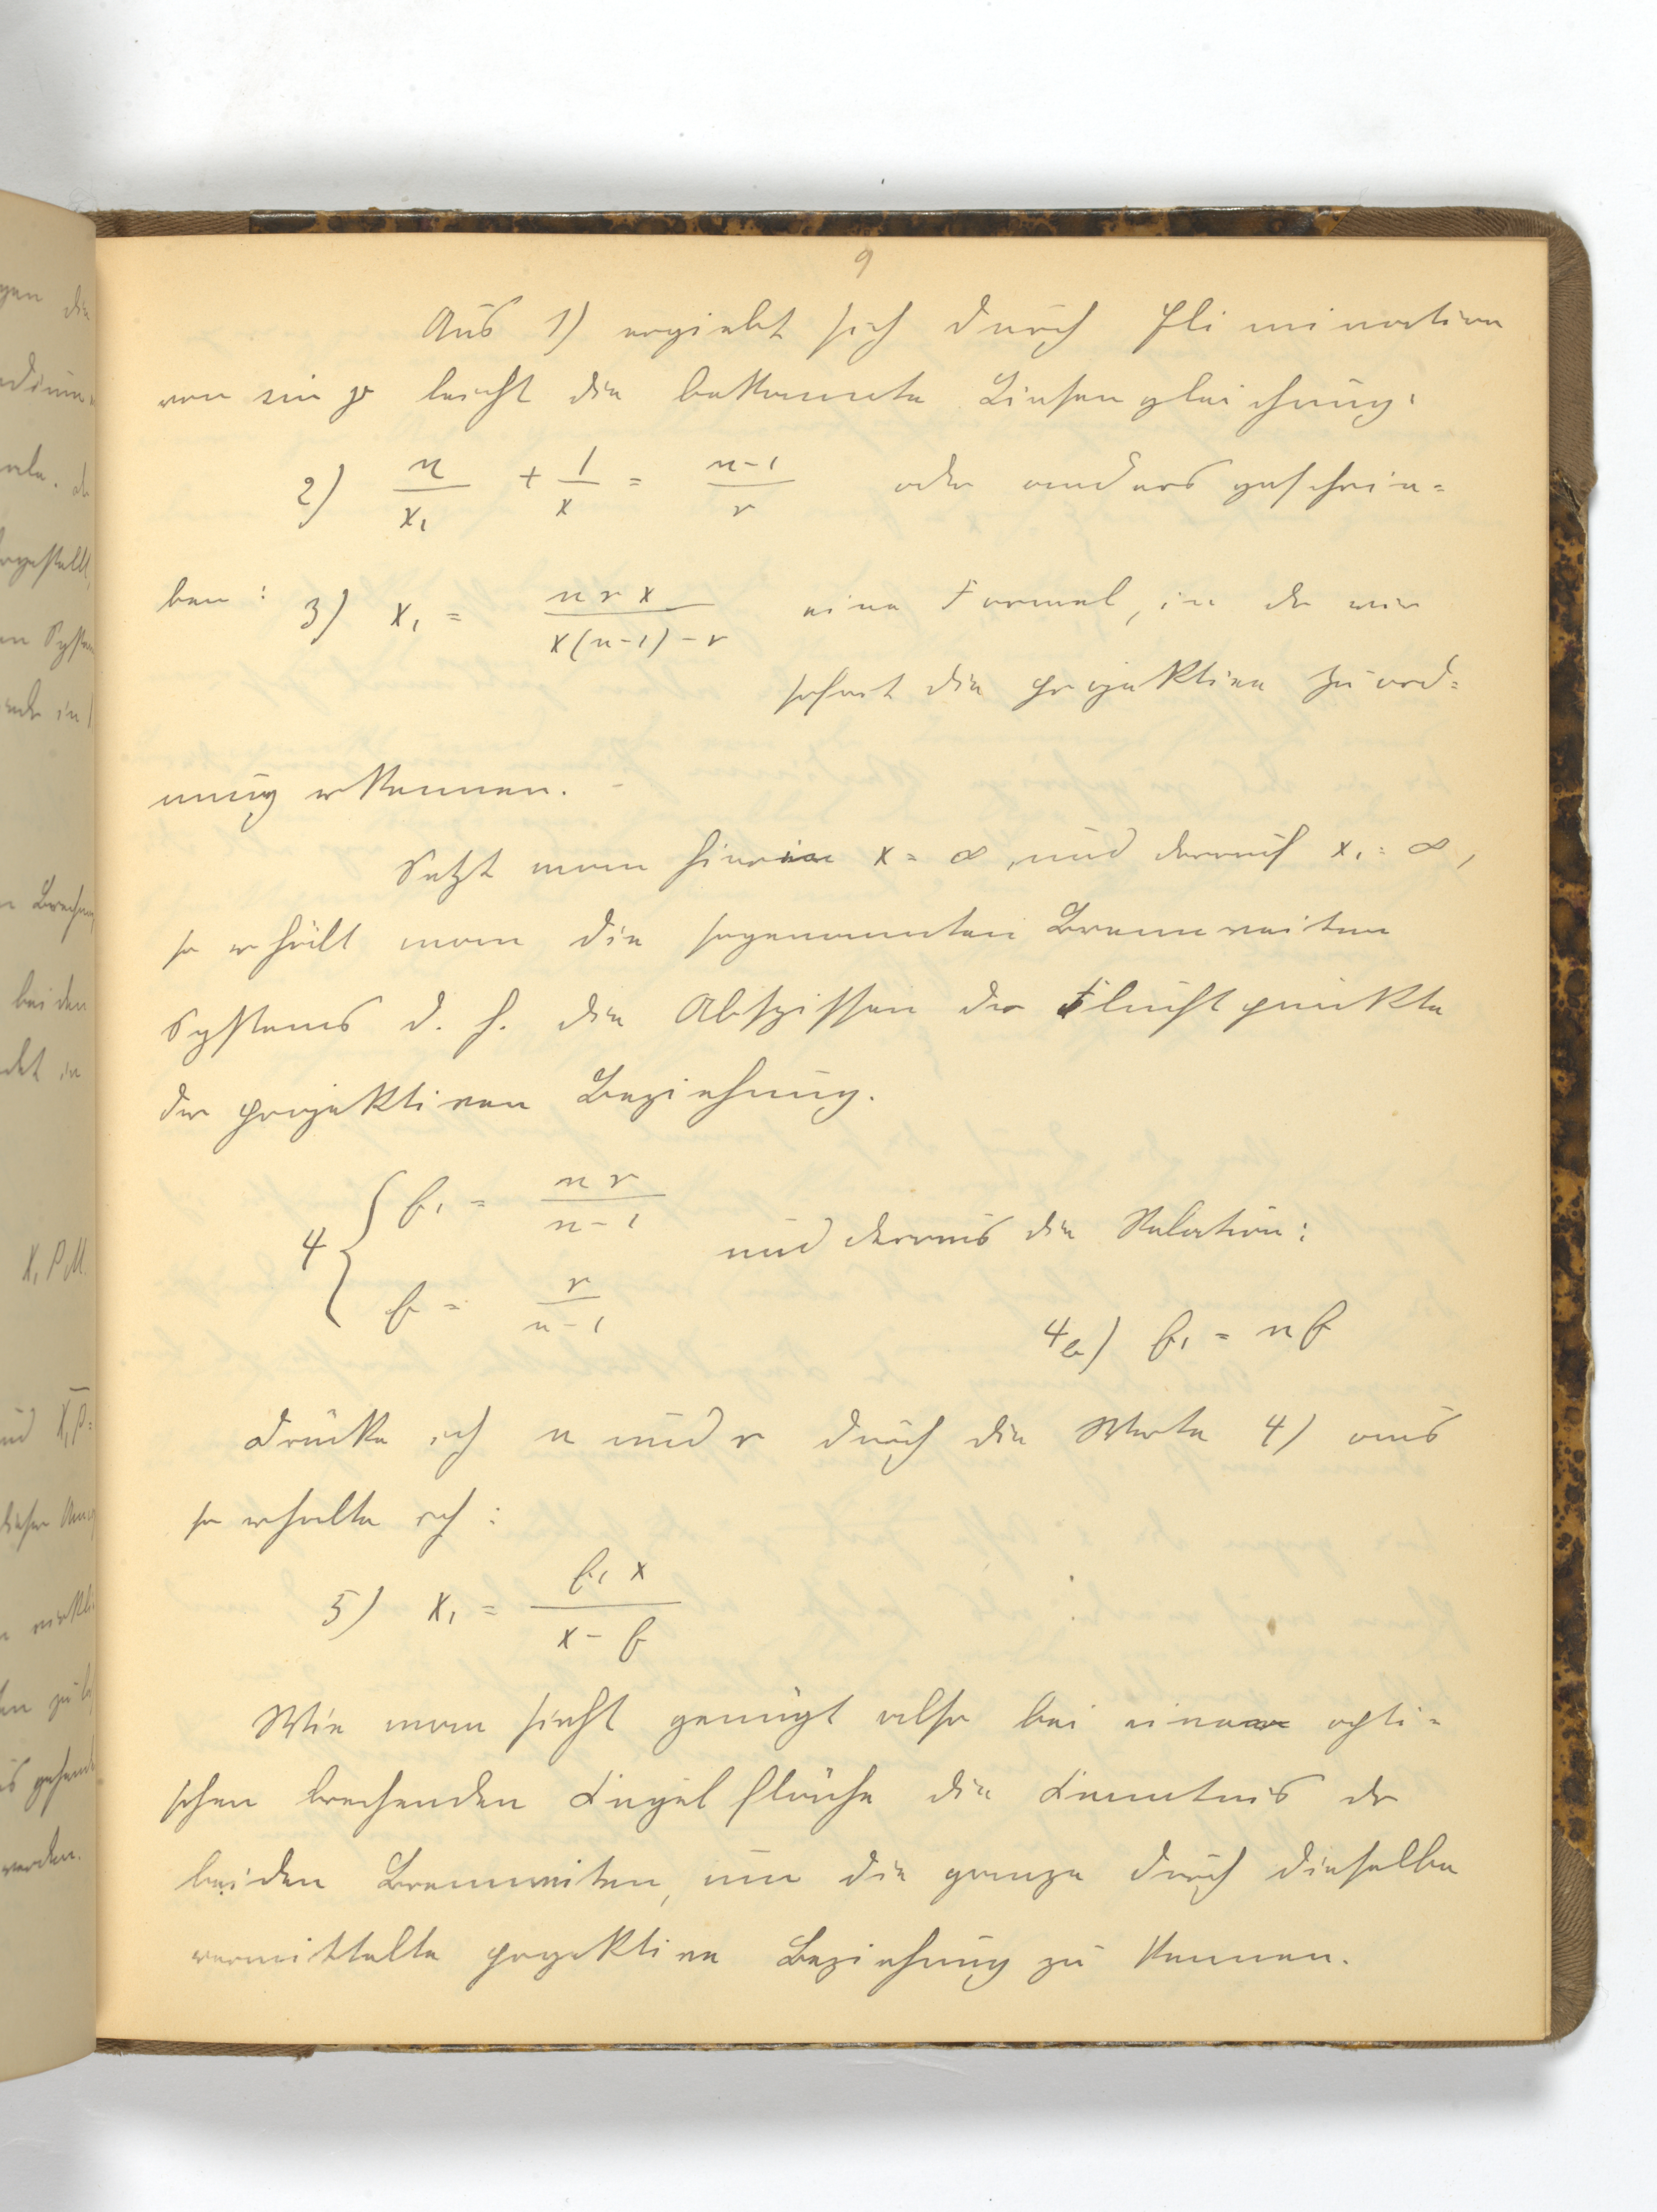 9
Aus 1) ergiebt sich durch Elimination
von sin φ leicht die bekannte Linsengleichung:
2) n/x₁ + 1/x = n-1/r oder anders geschrie=
ben: 3) x₁ = n r x / x(n-1)-r eine Formel, in der wir
sofort die projektive Zuord=
nung erkennen.
Setzt man hierin x = ∞ und darauf x₁ = ∞,
so erhält man die sogenannten Brennweiten
Systems d. h. die Abszissen der Fluchtpunkte
der projektiven Beziehung.
4 { f₁ = n r / n-1
und daraus die Relation:
f = r / n-1
4a) f₁ = n f
Drücke ich n und r durch die Werte 4) aus
so erhalte ich:
5) x₁ = f₁ x / x - f
Wie man sieht genügt also bei einer opti=
schen brechenden Kugelfläche die Kenntnis der
beiden Brennweiten, um die ganze durch dieselbe
vermittelte projektive Beziehung zu kennen.